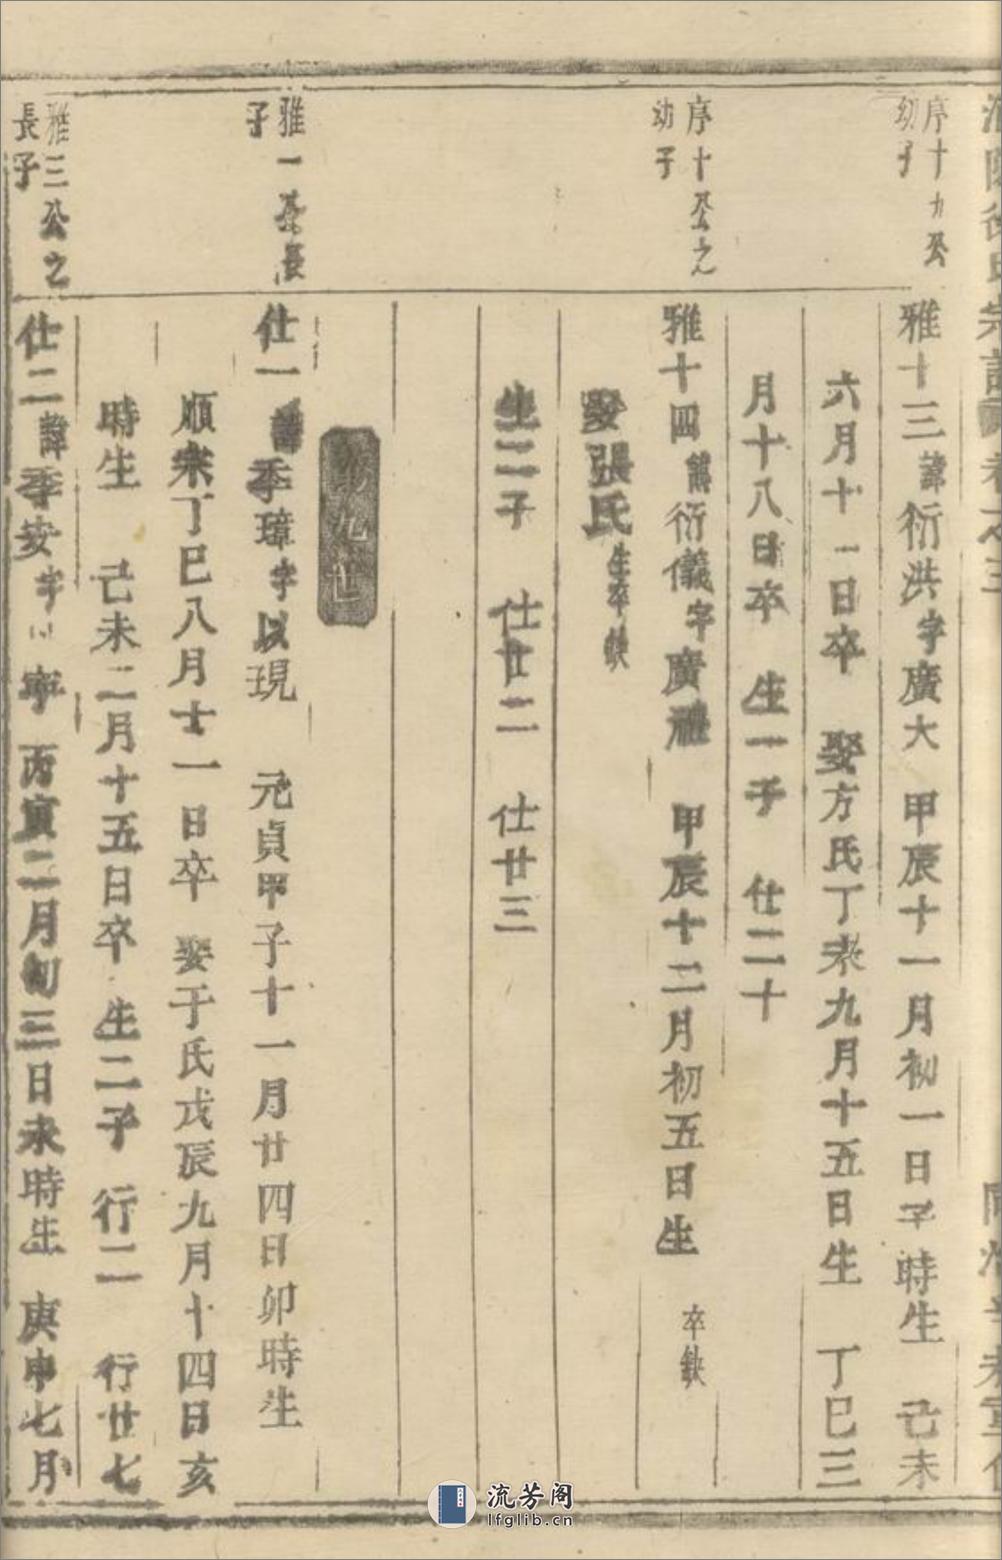 宗譜 卷之三
序十九公
幼子
雅十三諱衍洪字廣大 甲辰十一月初一日子時生 己未
六月十一日卒 娶方氏丁未九月十五日生 丁巳三
月十八日卒 生一子 仕二十
序十公之
幼子
雅十四諱衍儀字廣禮 甲辰十二月初五日生 卒缺
娶張氏生卒缺
生二子 仕廿二 仕廿三
第九世
雅一公長
子
仕一諱季璋字以現 元貞甲子十一月廿四日卯時生
順宗丁巳八月十一日卒 娶于氏戊辰九月十四日亥
時生 己未二月十五日卒 生二子 行二 行廿七
雅三公之
長子
仕二諱季安字以寧 丙寅二月初三日未時生 庚申七月
流芳阁
lfglib.cn